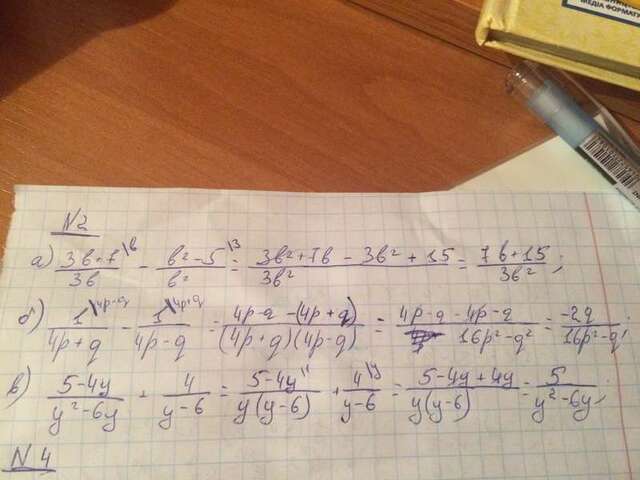 МЕДІА ФОРМАТ
N2
а) (3в+7)/3в \в - (в²-5)/в² \3 = (3в²+7в-3в²+15)/3в² = (7в+15)/3в²;
б) 1/(4p+q) \4p-q - 1/(4p-q) \4p+q = (4p-q-(4p+q))/((4p+q)(4p-q)) = (4p-q-4p-q)/(16p²-q²) = -2q/(16p²-q²);
в) (5-4y)/(y²-6y) + 4/(y-6) = (5-4y)/(y(y-6)) + 4\y/(y-6) = (5-4y+4y)/(y(y-6)) = 5/(y²-6y);
N4